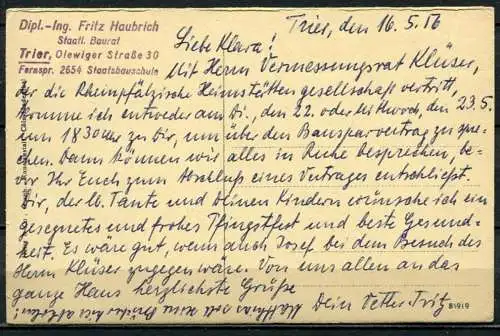 Dipl.-Ing. Fritz Haubrich
Staatl. Baurat
Trier, Olewiger Straße 30
Fernspr. 2654 Staatsbauschule
Trier, den 16.5.56
Liebe Klara!
Mit Herrn Vermessungsrat Klüser,
der die Rheinpfälzische Heimstättengesellschaft vertritt,
komme ich entweder am Di., den 22. oder Mittwoch, den 23.5.
um 18 30 Uhr zu Dir, um über den Bausparvertrag zu spre-
chen. Dann können wir alles in Ruhe besprechen, be-
vor Ihr Euch zum Abschluß eines Vertrages entschließt.
Dir, der lb. Tante und Deinen Kindern wünsche ich ein
gesegnetes und frohes Pfingstfest und beste Gesund-
heit. Es wäre gut, wenn auch Josef bei dem Besuch des
Herrn Klüser zugegen wäre. Von uns allen an das
ganze Haus herzlichste Grüße
Dein Vetter Fritz
Matthias soll seine
81919